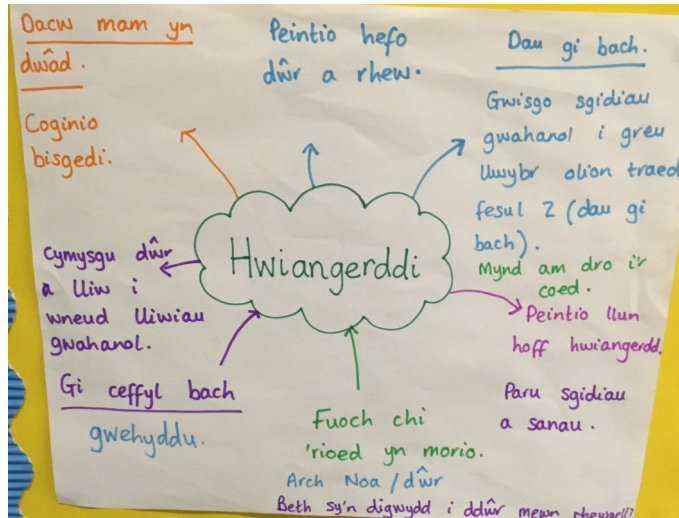 Dacw mam yn
dŵad.
Coginio
bisgedi.
Peintio hefo
dŵr a rhew.
Dau gi bach.
Gwisgo sgidiau
gwahanol i greu
llwybr olion traed
fesul 2 (dau gi
bach).
Mynd am dro i'r
coed.
Peintio llun
hoff hwiangerdd.
Paru sgidiau
a sanau.
Hwiangerddi
Cymysgu dŵr
a lliw i
wneud lliwiau
gwahanol.
Gi ceffyl bach
gwehyddu.
Fuoch chi
'rioed yn morio.
Arch Noa / dŵr
Beth sy'n digwydd i ddŵr mewn rhewgell?